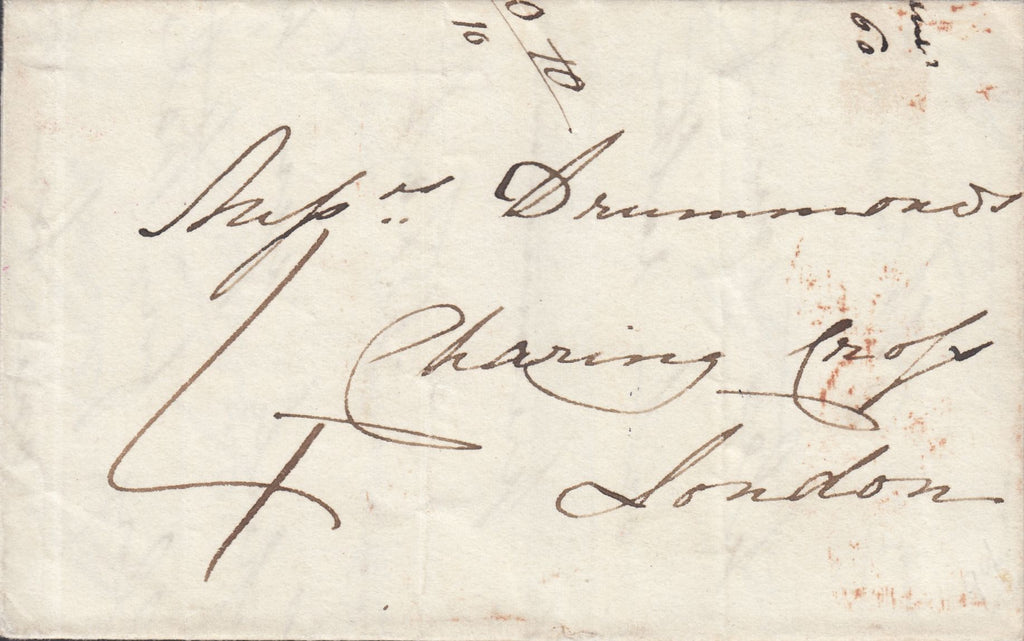 10
60
Messrs Drummonds
Charing Cross
4
London